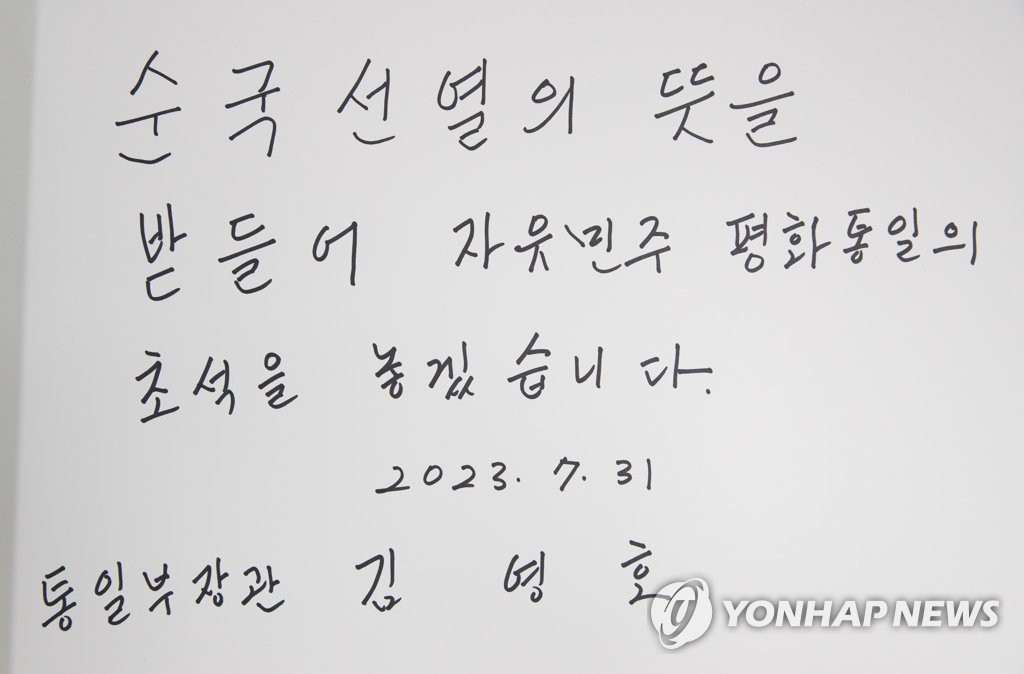 순국선열의 뜻을
받들어 자유민주 평화통일의
초석을 놓겠습니다.
2023. 7. 31
통일부장관 김영호
YONHAP NEWS